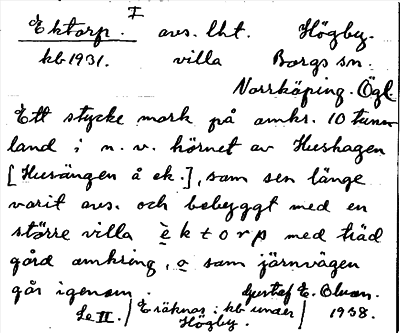 I
Ektorp. avs. lht. Högby.
kb 1931. villa Borgs sn.
Norrköping. Ögl.
Ett stycke mark på omkr. 10 tunn
land i n. v. hörnet av Hushagen
[Husängen å ek.], som sen länge
varit avs. och bebyggt med en
större villa èktorp med träd
gård omkring, o som järnvägen
går igenom. Gustaf E. Olson.
Se II. / E räknas: kb under / 1938.
Högby.